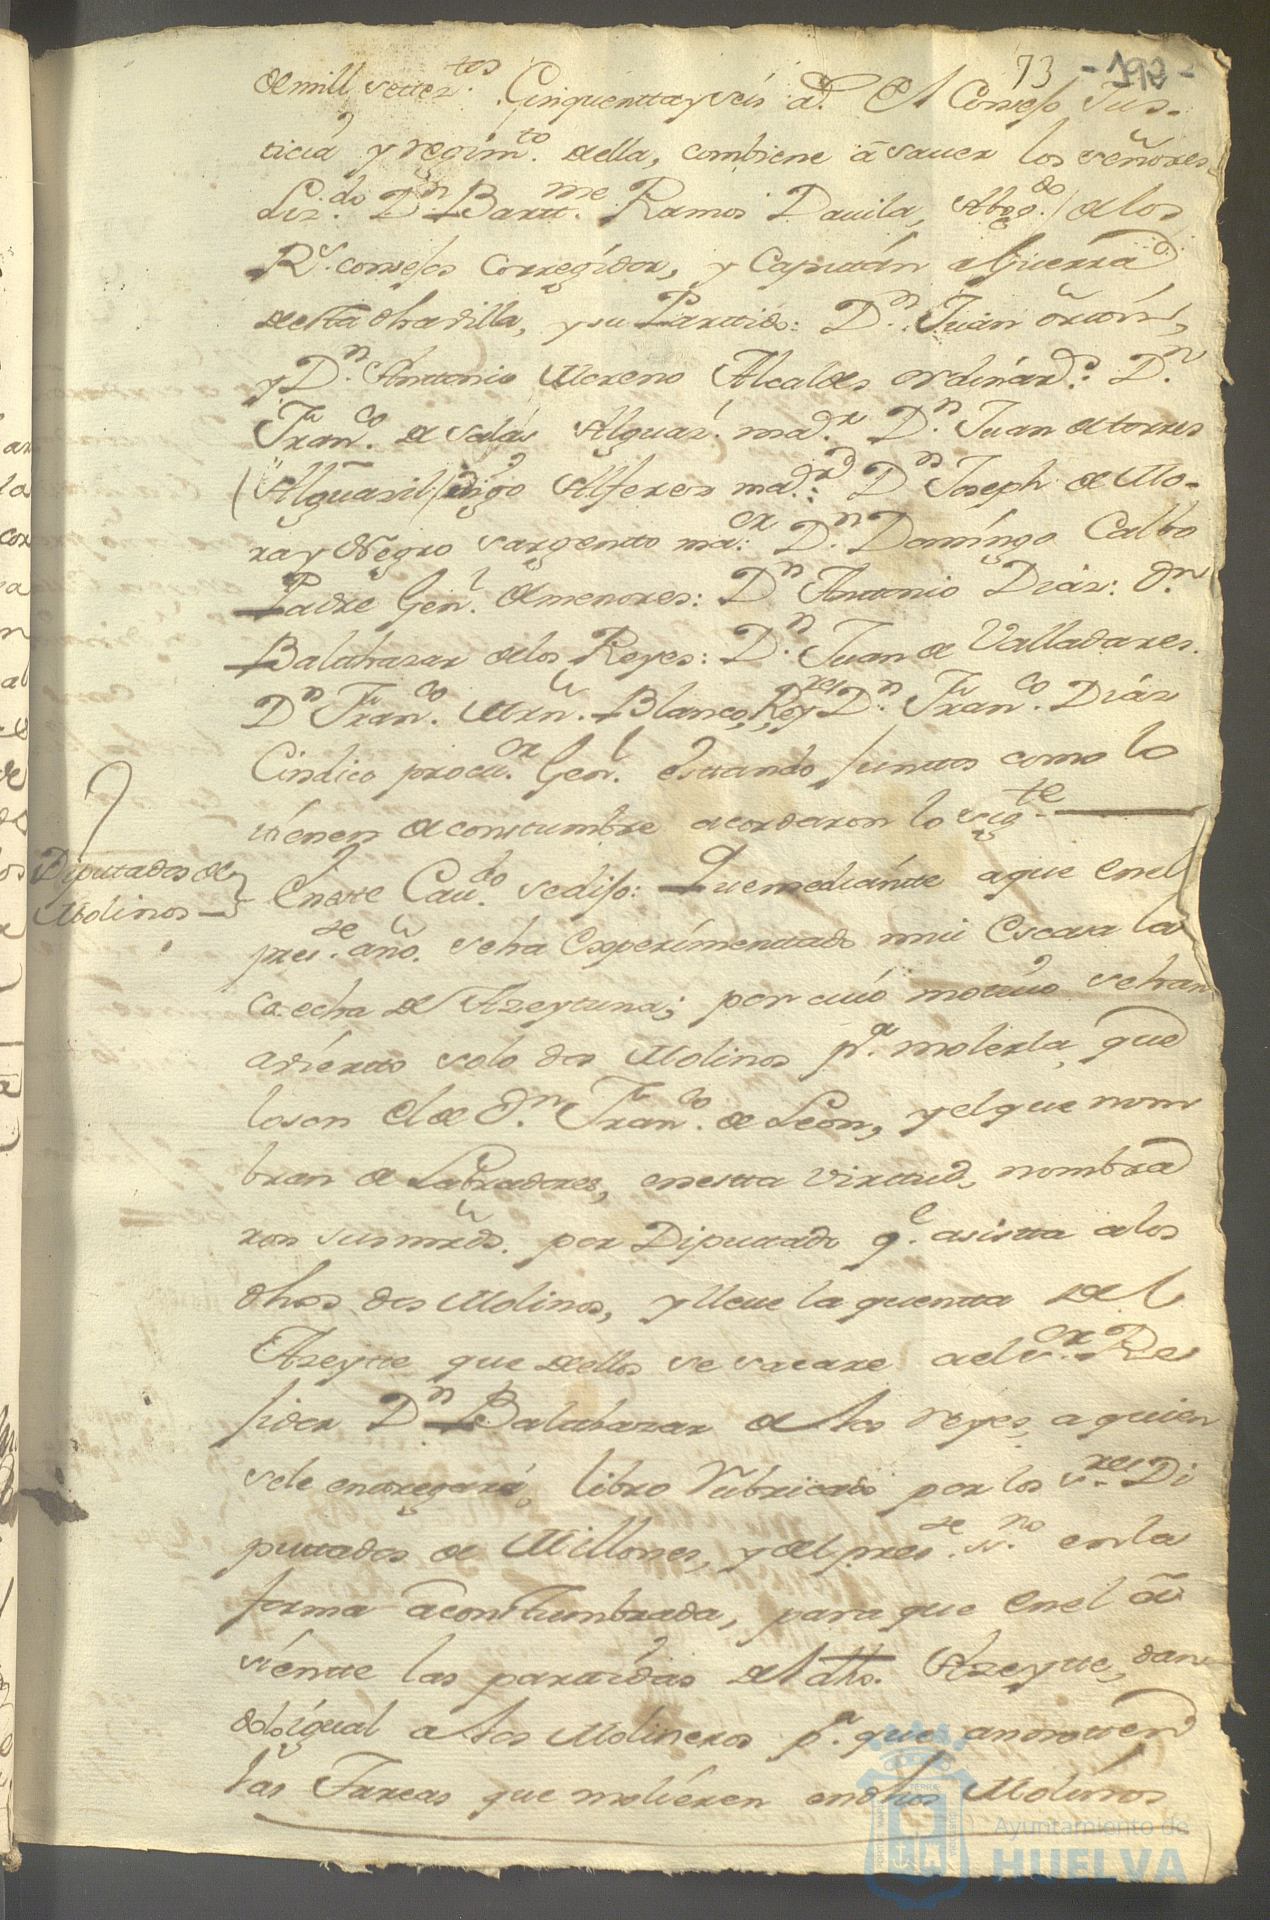 73 - 192 -
de mill settez.tos Cinquenttay seis ad. El Consejo Jus-
ticia y regim.to della, combiene â saver los señores
Liz.do D.n Bartt.me Ramos Davila, Abog.do de los
R.s consejos Corregidor, y Capittán a Guerra
desta dha villa, y su Parttido: D.n Juan
y D.n Anttonio Moreno Alcaldes ordinar.s D.n
Fran.co de Salas Alguaz.l ma.r D.n Juan de torres
(Alguasil) digo Alferes ma.r D.n Joseph de Mo-
ra y Negro sargentto ma.or D.n Domingo Calbo
Padre Gen.l de menores: D.n Anttonio Diaz: D.n
Balthazar de los Reyes: D.n Juan de Valladares.
D.n Fran.co Mrn. Blanco, Rex.res D.n Fran.co Diaz
Cindico procu.or Gen.l esttando junttos como lo
tienen de consttumbre acordaron lo sig.te
Diputados de
Molinos
En este Cau.do se dijo: Que mediántte a que en el
pres.se año. se ha Experimenttado mui Escasa la
cosecha de Azeytuna; por cuio motivo se han
abiertto solo dos Molinos p.a molerla, que
lo son el de D.n Fran.co de Leon, y el que nom
bran de Labradores, en estta virttud, nombra
ron sus mrds. por Diputtado q.e asistta a los
dhos dos Molinos, y lleve la quentta del
Azeytte que dellos se sacare a el s.or Re
jidor D.n Balthazar de los reyes, a quien
se le enttregará libro rubricado por los s.res Di
puttados de Millones, y del pres.se ss.no en la
forma aconsttumbrada, para que en el a
sientte las parttidas del dho. Azeytte, dan
do igual a los Molineros p.a que anotten
las Tareas que molieren en dhos Molinos
Ayuntamiento de
HUELVA